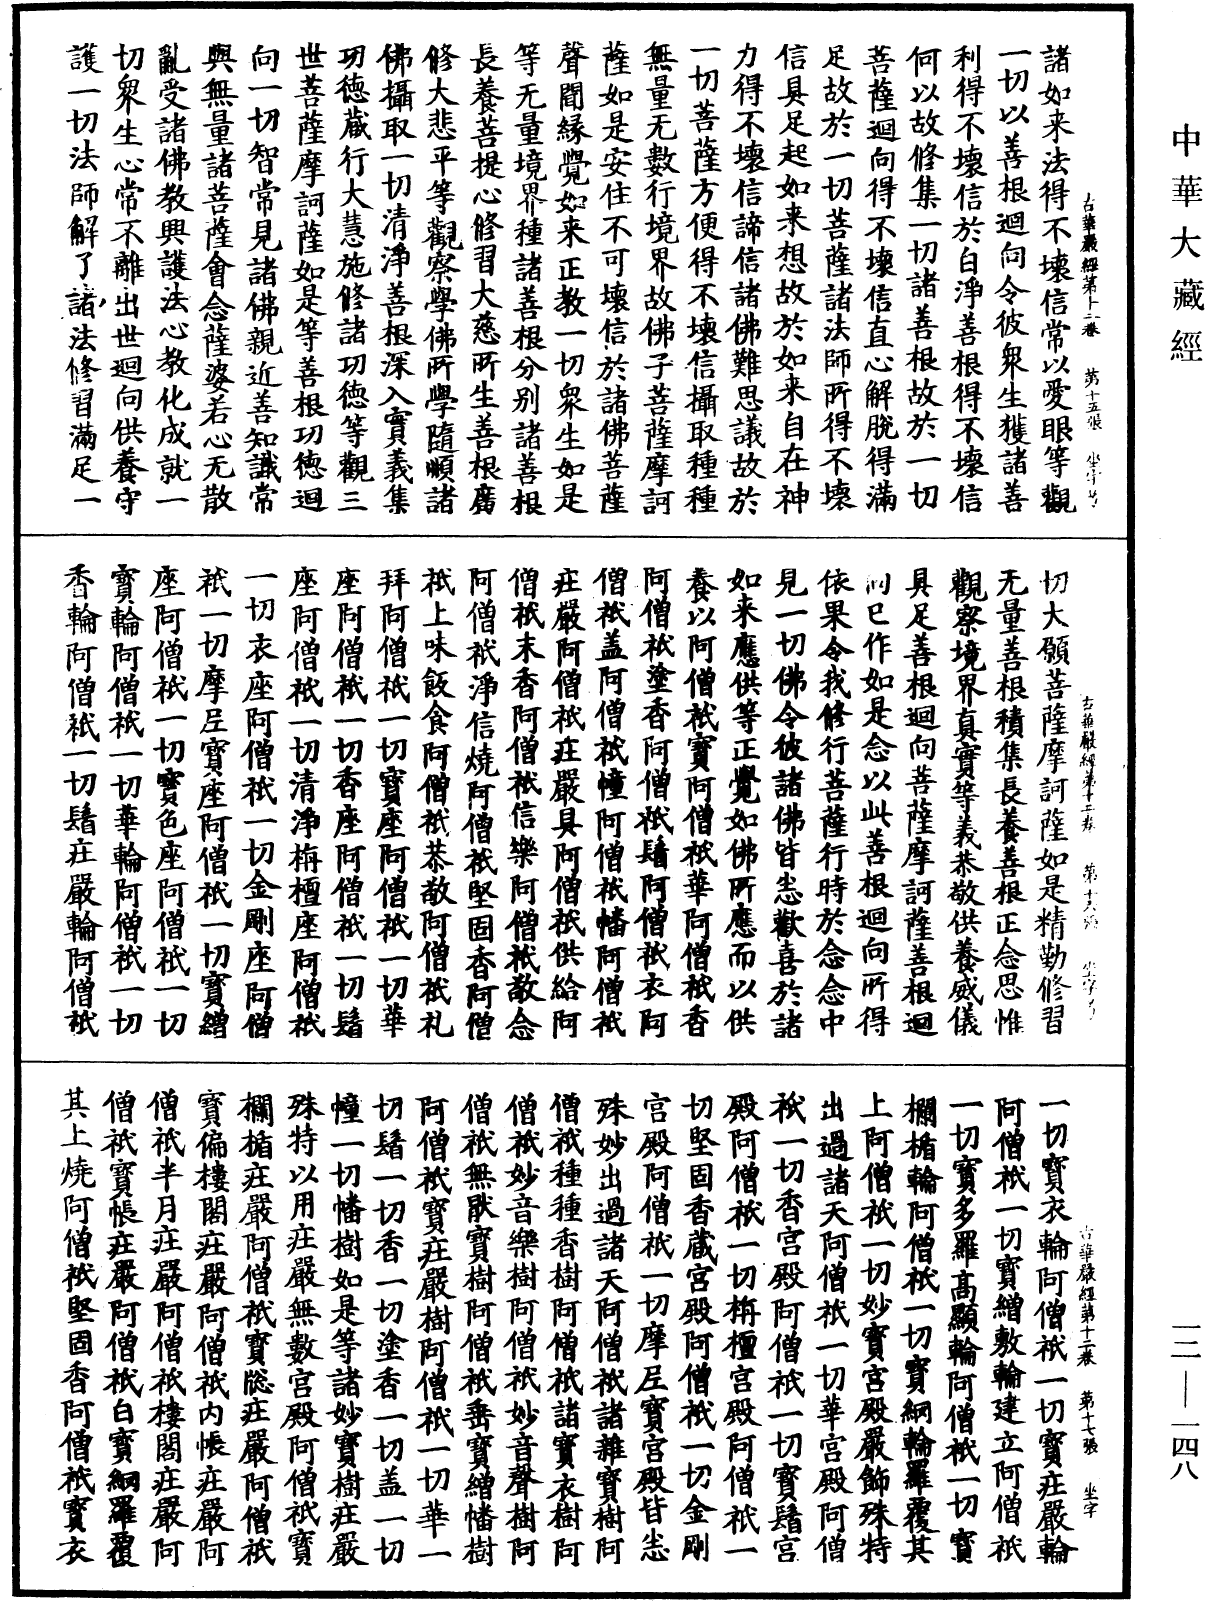 中華大藏經
諸如来法得不壞信常以愛眼等觀
一切以善根迴向令彼衆生獲諸善
利得不壞信於白淨善根得不壞信
何以故修集一切諸善根故於一切
菩薩迴向得不壞信直心解脫得滿
足故於一切菩薩諸法師所得不壞
信具足起如来想故於如来自在神
力得不壞信諦信諸佛難思議故於
一切菩薩方便得不壞信攝取種種
無量无數行境界故佛子菩薩摩訶
薩如是安住不可壞信於諸佛菩薩
聲聞緣覺如来正教一切衆生如是
等无量境界種諸善根分別諸善根
長養菩提心修習大慈所生善根廣
修大悲平等觀察學佛所學隨順諸
佛攝取一切清淨善根深入實義集
功德藏行大慧施修諸功德等觀三
世菩薩摩訶薩如是等善根功德迴
向一切智常見諸佛親近善知識常
與無量諸菩薩會念薩婆若心无散
亂受諸佛教興護法心教化成就一
切衆生心常不離出世迴向供養守
護一切法師解了諸法修習滿足一
古華嚴經第十二卷 第十五張 坐字号
切大願菩薩摩訶薩如是精勤修習
无量善根積集長養善根正念思惟
觀察境界真實等義恭敬供養威儀
具足善根迴向菩薩摩訶薩善根迴
向已作如是念以此善根迴向所得
依果令我修行菩薩行時於念念中
見一切佛令彼諸佛皆悉歡喜於諸
如来應供等正覺如佛所應而以供
養以阿僧祇寶阿僧祇華阿僧祇香
阿僧祇塗香阿僧祇鬘阿僧祇衣阿
僧祇盖阿僧祇幢阿僧祇幡阿僧祇
莊嚴阿僧祇莊嚴具阿僧祇供給阿
僧祇末香阿僧祇信樂阿僧祇敬念
阿僧祇淨信燒阿僧祇堅固香阿僧
祇上味飯食阿僧祇恭敬阿僧祇礼
拜阿僧祇一切寶座阿僧祇一切華
座阿僧祇一切香座阿僧祇一切鬘
座阿僧祇一切清淨栴檀座阿僧祇
一切衣座阿僧祇一切金剛座阿僧
祇一切摩尼寶座阿僧祇一切寶繒
座阿僧祇一切寶色座阿僧祇一切
寶輪阿僧祇一切華輪阿僧祇一切
香輪阿僧祇一切鬘莊嚴輪阿僧祇
古華嚴經第十二卷 第十六張 坐字号
一切寶衣輪阿僧祇一切寶莊嚴輪
阿僧祇一切寶繒敷輪建立阿僧祇
一切寶多羅高顯輪阿僧祇一切寶
欄楯輪阿僧祇一切寶網輪羅覆其
上阿僧祇一切妙寶宮殿嚴飾殊特
出過諸天阿僧祇一切華宮殿阿僧
祇一切香宮殿阿僧祇一切寶鬘宮
殿阿僧祇一切栴檀宮殿阿僧祇一
切堅固香藏宮殿阿僧祇一切金剛
宮殿阿僧祇一切摩尼寶宮殿皆悉
殊妙出過諸天阿僧祇諸雜寶樹阿
僧祇種種香樹阿僧祇諸寶衣樹阿
僧祇妙音樂樹阿僧祇妙音聲樹阿
僧祇無猒寶樹阿僧祇垂寶繒幡樹
阿僧祇寶莊嚴樹阿僧祇一切華一
切鬘一切香一切塗香一切盖一切
幢一切幡樹如是等諸妙寶樹莊嚴
殊特以用莊嚴無數宮殿阿僧祇寶
欄楯莊嚴阿僧祇寶牕莊嚴阿僧祇
寶偏樓閣莊嚴阿僧祇内帳莊嚴阿
僧祇半月莊嚴阿僧祇樓閣莊嚴阿
僧祇寶帳莊嚴阿僧祇白寶網羅覆
其上燒阿僧祇堅固香阿僧祇寶衣
古華嚴經第十二卷 第十七張 坐字
一二—一四八